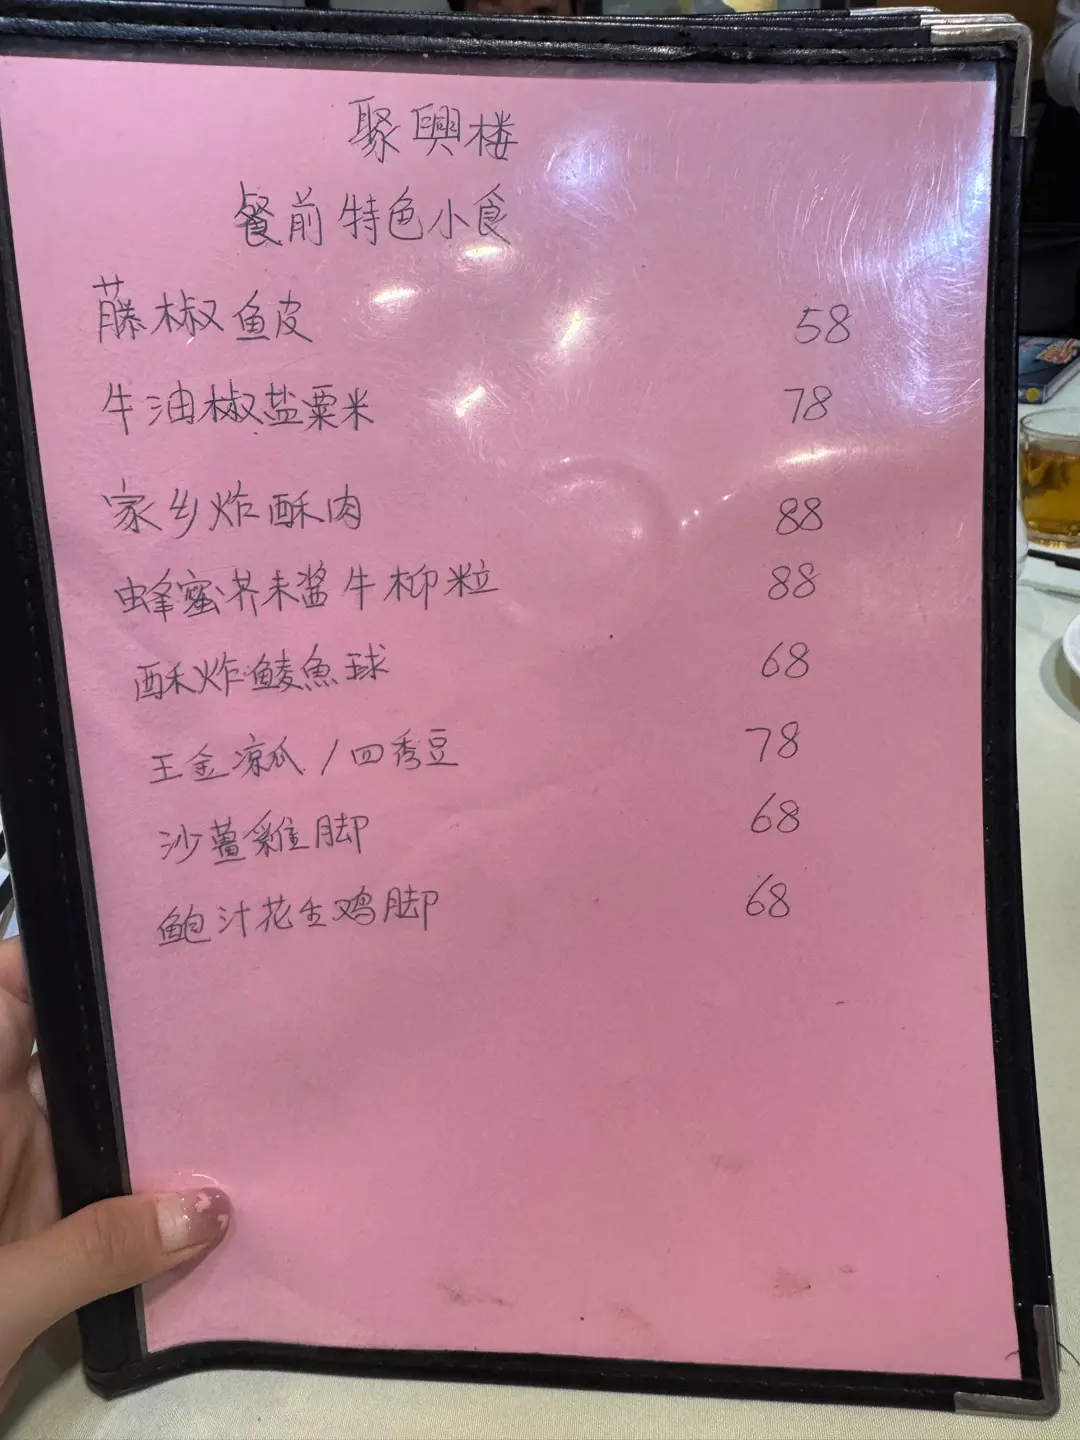 聚興楼
餐前特色小食
藤椒鱼皮 58
牛油椒盐粟米 78
家乡炸酥肉 88
蜂蜜芥末酱牛柳粒 88
酥炸鲮魚球 68
王金凉瓜/四秀豆 78
沙薑雞脚 68
鲍汁花生鸡脚 68